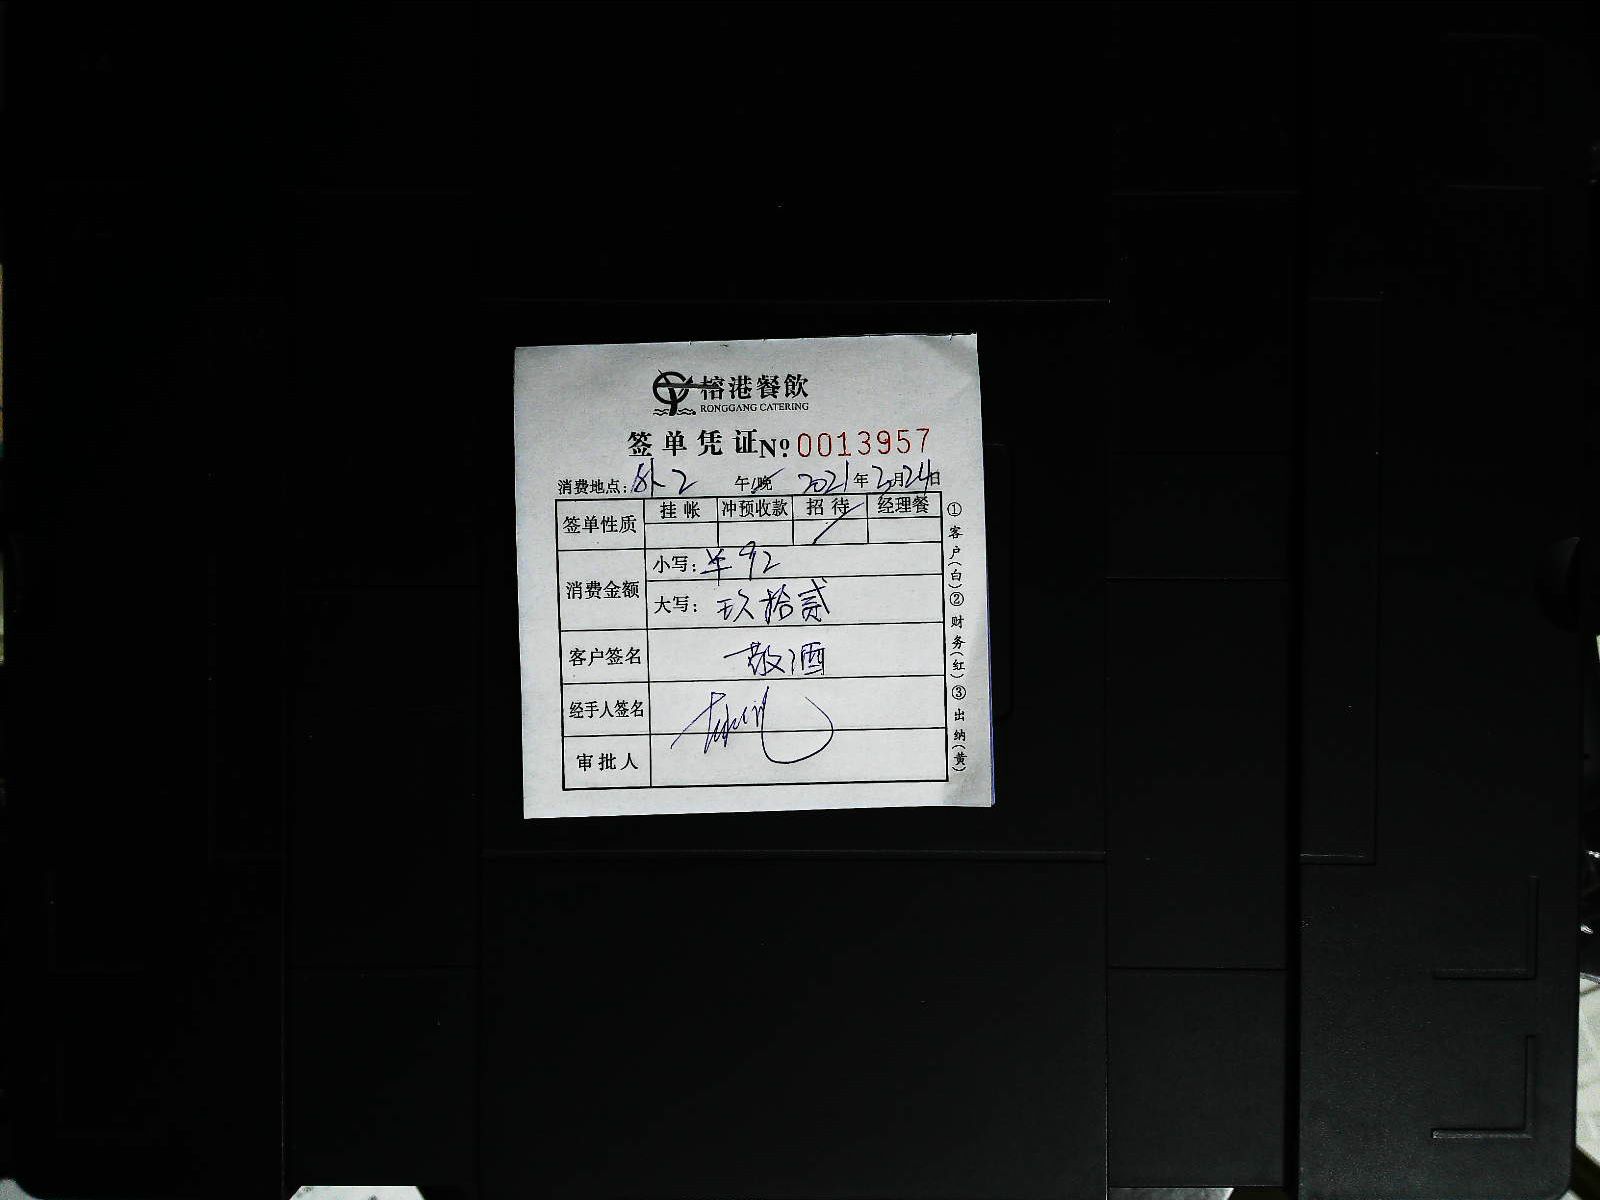 榕港餐飲
RONGGANG CATERING
签单凭证 № 0013957
消费地点: 2 午/晚 2021年2月24日
签单性质 挂帐 冲预收款 招待 经理餐
消费金额 小写: ¥92
大写: 玖拾贰
客户签名 敬酒
经手人签名
审批人
①客户(白)②财务(红)③出纳(黄)